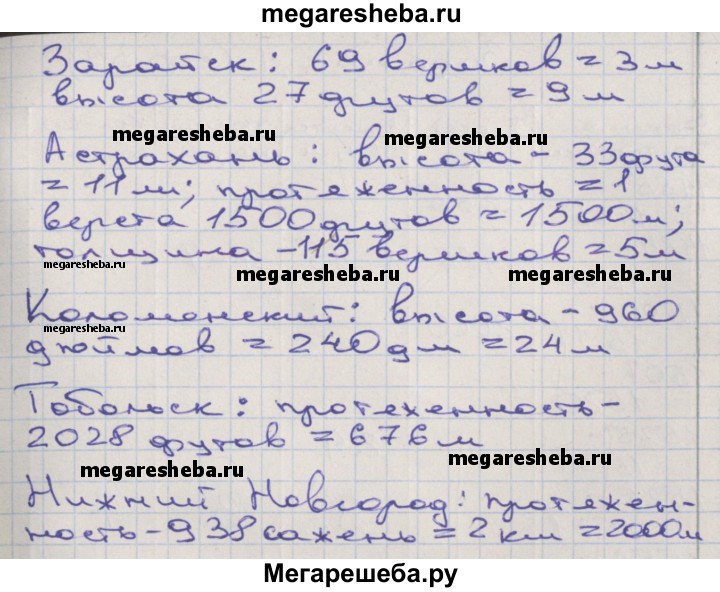 megaresheba.ru
Зарайск: 69 вершков = 3 м
высота 27 футов = 9 м
megaresheba.ru megaresheba.ru
Астрахань: высота - 33 фута
= 11 м; протяженность = 1
верста 1500 футов = 1500 м;
толщина - 115 вершков = 5 м
megaresheba.ru megaresheba.ru megaresheba.ru
Коломенский: высота - 960
megaresheba.ru
дюймов = 240 дм = 24 м
Тобольск: протяженность -
2028 футов = 676 м
megaresheba.ru megaresheba.ru
Нижний Новгород: протяжен-
ность - 938 сажень = 2 км = 2000 м
Мегарешеба.ру